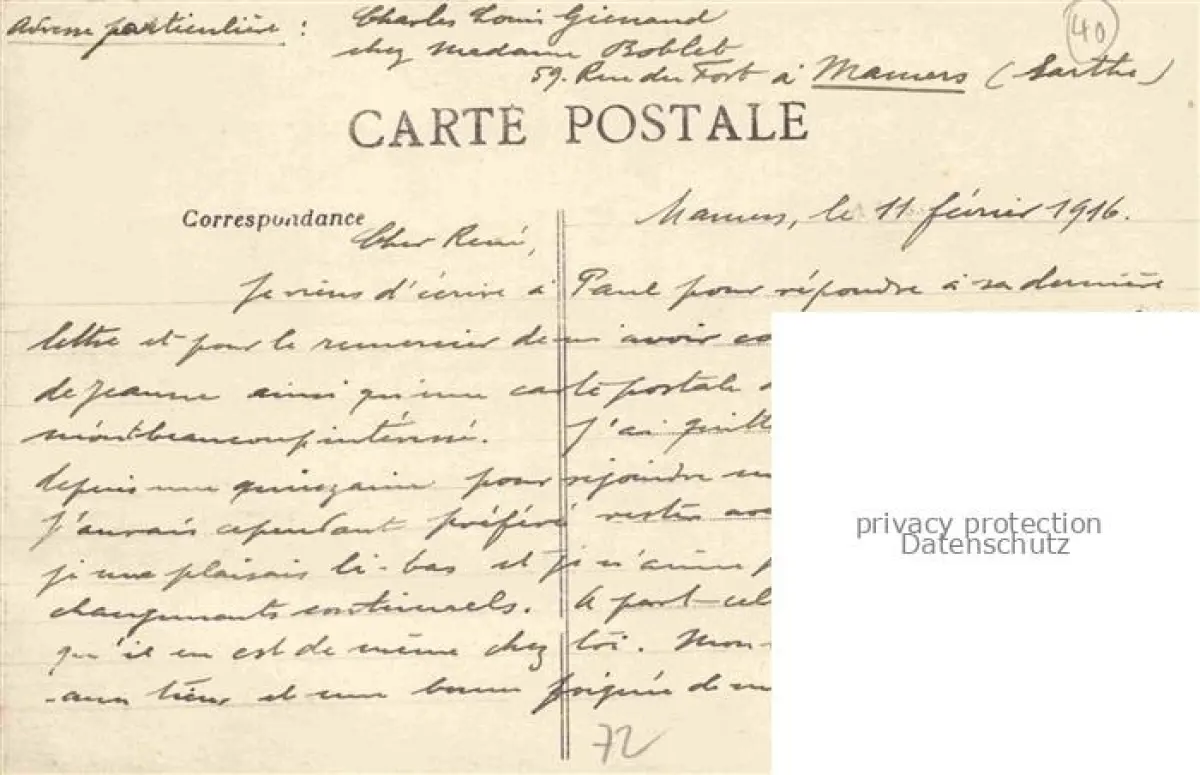 Adresse particulière : Charles Louis
chez Madame Boblet
59. Rue du Fort à Mamers (Sarthe)
40
CARTE POSTALE
Correspondance
Mamers, le 11 février 1916.
Cher René,
Je viens d'écrire à Paul pour répondre à sa dernière
lettre et pour le remercier de m'avoir
de Jeanne ainsi qu'une carte postale
m'ont beaucoup intéressé. J'ai
depuis une quinzaine pour rejoindre
J'aurais cependant préféré rester
je me plaisais là-bas et je n'aime
changements continuels. A part
qu'il en est de même chez toi. Mon
aux tiens et une bonne poignée de
72
privacy protection
Datenschutz